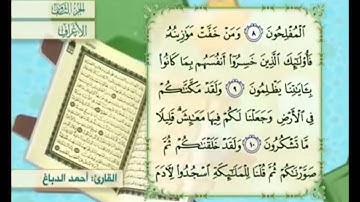 الجزء الثامن
الأعراف
ٱلْمُفْلِحُونَ ٨ وَمَنْ خَفَّتْ مَوَٰزِينُهُۥ
فَأُو۟لَٰٓئِكَ ٱلَّذِينَ خَسِرُوٓا۟ أَنفُسَهُم بِمَا كَانُوا۟
بِـَٔايَٰتِنَا يَظْلِمُونَ ٩ وَلَقَدْ مَكَّنَّٰكُمْ
فِى ٱلْأَرْضِ وَجَعَلْنَا لَكُمْ فِيهَا مَعَٰيِشَ ۗ قَلِيلًا
مَّا تَشْكُرُونَ ١٠ وَلَقَدْ خَلَقْنَٰكُمْ ثُمَّ
صَوَّرْنَٰكُمْ ثُمَّ قُلْنَا لِلْمَلَٰٓئِكَةِ ٱسْجُدُوا۟ لِـَٔادَمَ
القارئ: أحمد الدباغ